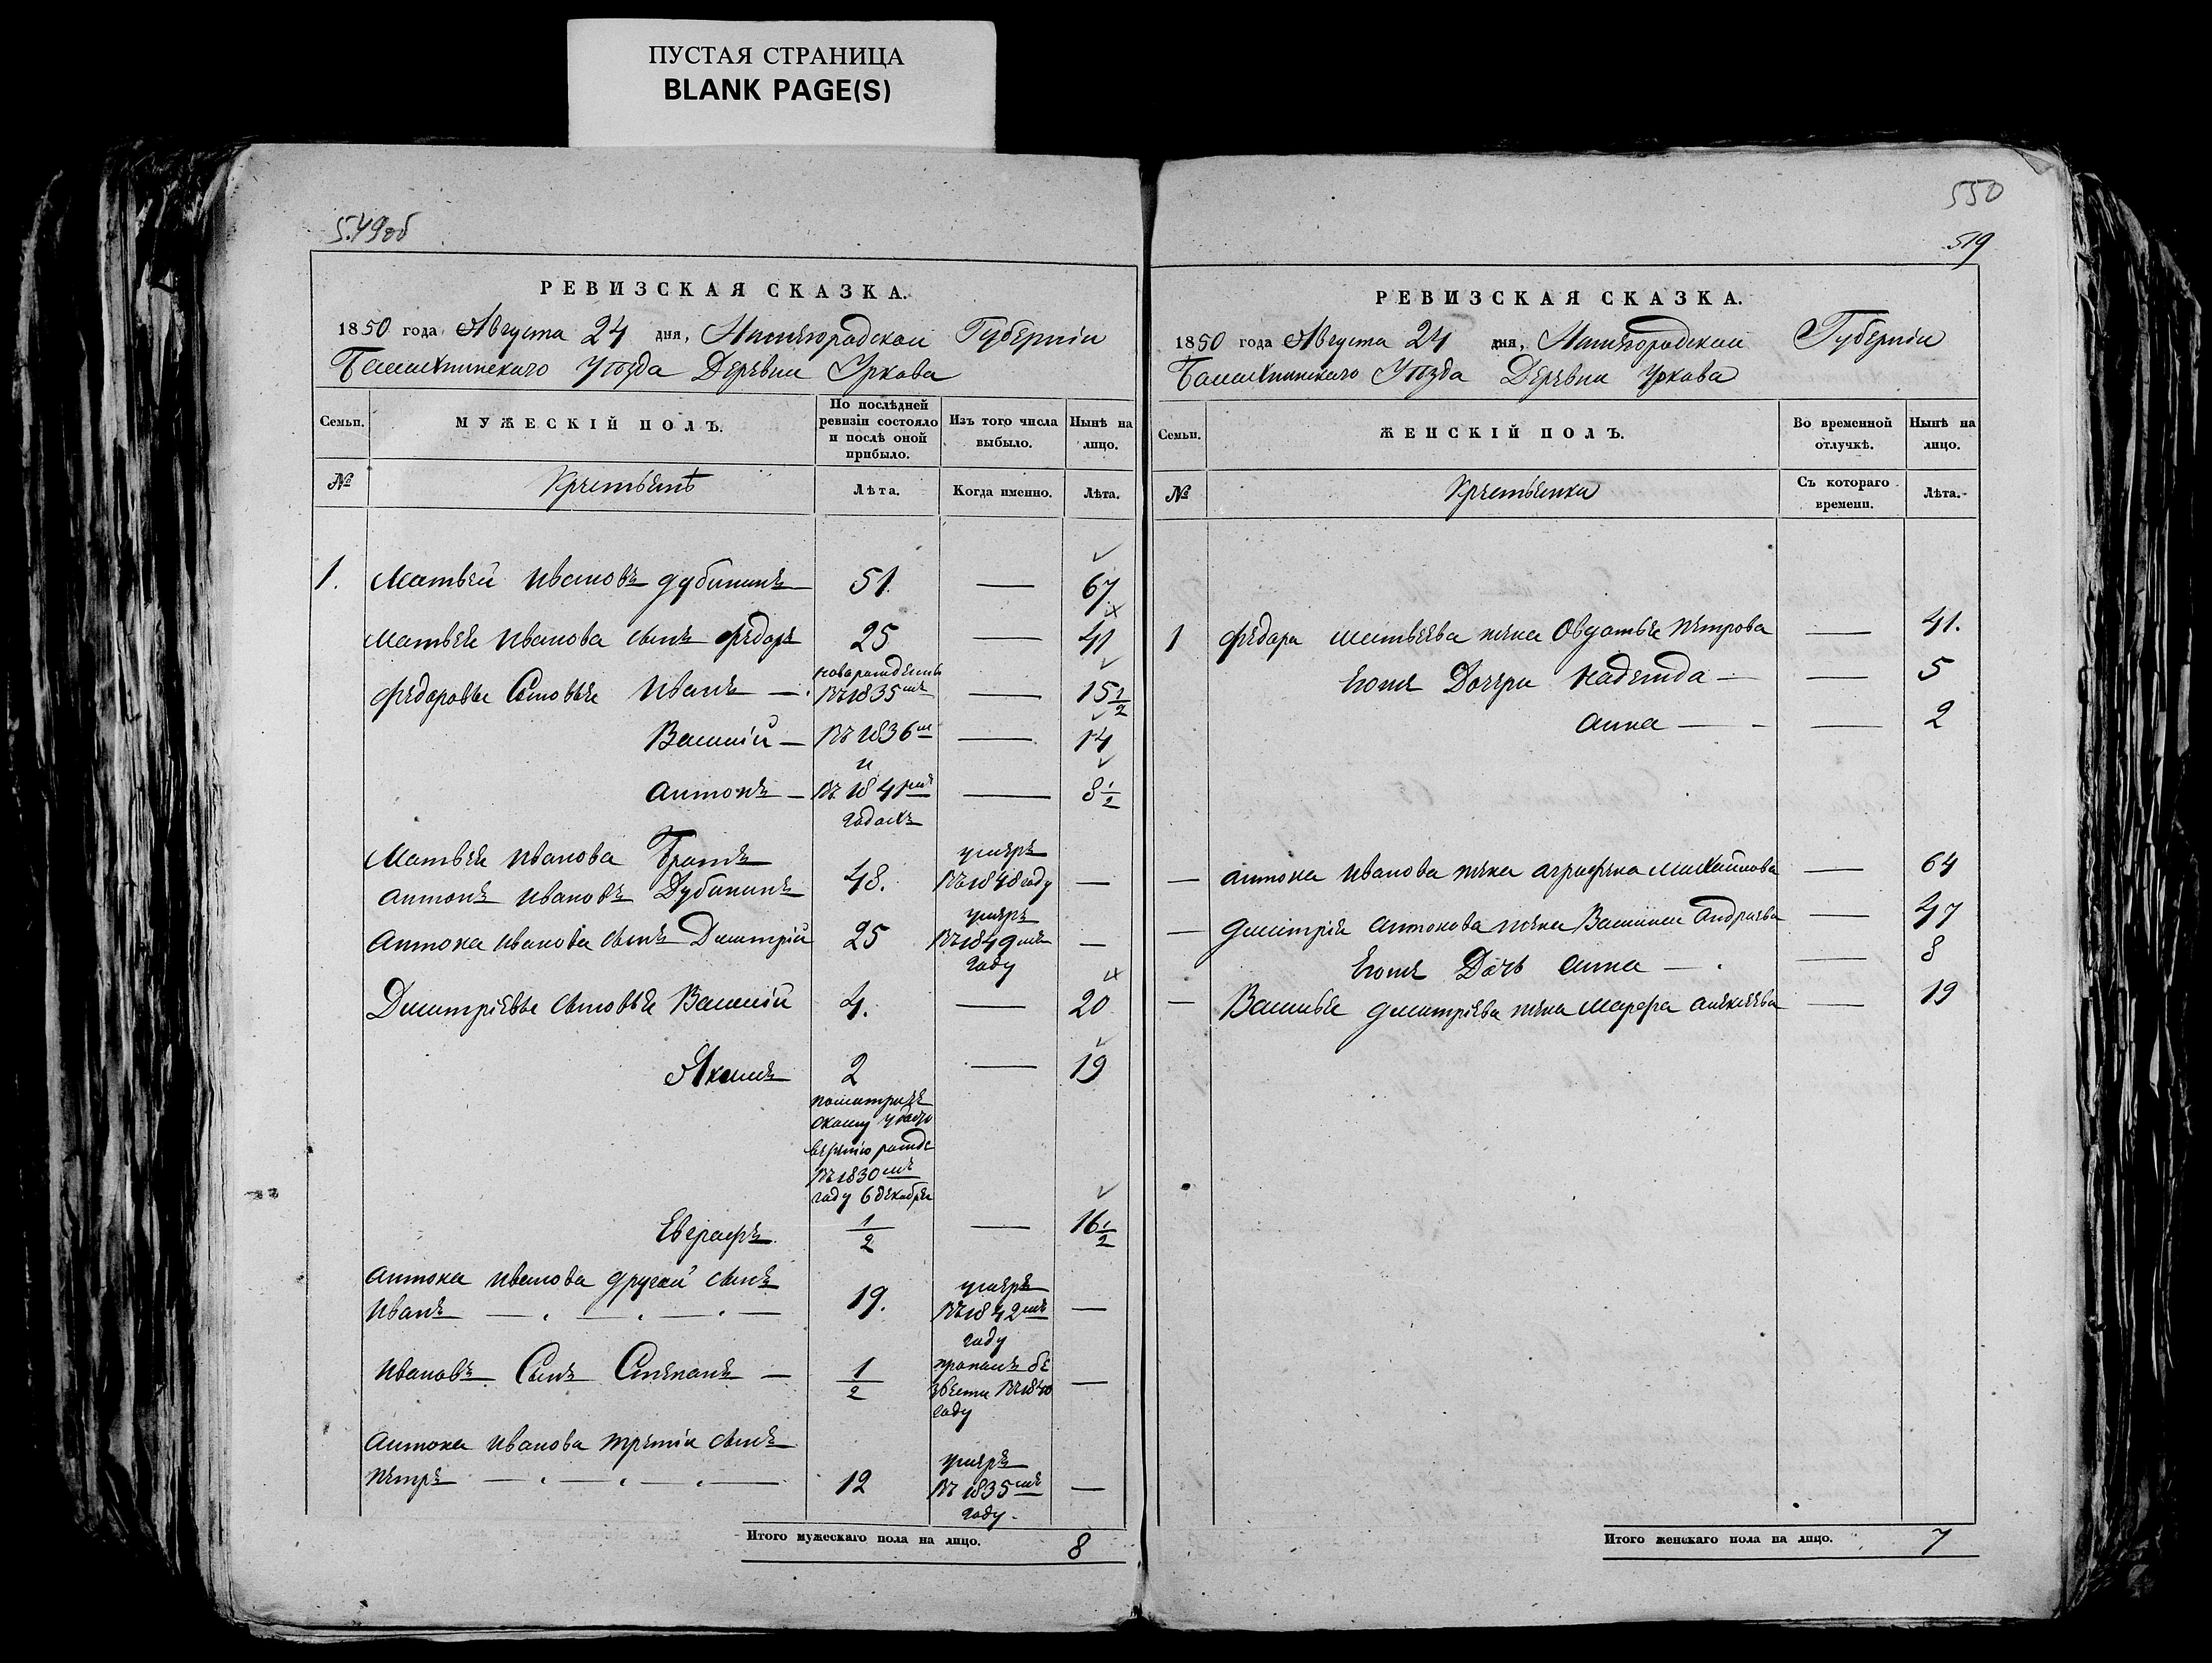 ПУСТАЯ СТРАНИЦА
BLANK PAGE(S)
549об
РЕВИЗСКАЯ СКАЗКА.
1850 года Августа 24 дня, Нижегородской Губерніи
Балахнинскаго Уѣзда Деревни Уркова
Семьи. МУЖЕСКІЙ ПОЛЪ. По послѣдней ревизіи состояло и послѣ оной прибыло. Изъ того числа выбыло. Нынѣ на лицо.
№ Крестьенѣ Лѣта. Когда именно. Лѣта.
1. Матвей Ивановъ Дубининъ 51. — 67
Матвея Иванова сынъ Федоръ 25 — 41
Федоровы Сыновья Иванъ — новорожденны въ 1835мъ — 15 1/2
Василій — въ 1836м — 14
и
Антонъ — въ 1841мъ — 8 1/2
годахъ
Матвея Иванова Братъ
Антонъ Ивановъ Дубининъ 48. умеръ въ 1848 году —
Антона Иванова сынъ Дмитрій 25 умеръ въ 1849мъ году —
Дмитріевы сыновья Василій 4. — 20
Якимъ 2 — 19
въ 1830мъ
году 6 декабря
Евграфъ 1/2 — 16 1/2
Антона Иванова другой сынъ
Иванъ — 19. умеръ въ 1842мъ году —
Ивановъ Сынъ Степанъ — 1/2 пропалъ бе звести въ 1840 году —
Антона Иванова третій сынъ
Петръ — 12 умеръ въ 1835мъ году. —
Итого мужескаго пола на лицо. 8
550
519
РЕВИЗСКАЯ СКАЗКА.
1850 года Августа 24 дня, Нижегородской Губерніи
Балахнинскаго Уѣзда Деревни Уркова
Семьи. ЖЕНСКІЙ ПОЛЪ. Во временной отлучкѣ. Нынѣ на лицо.
№ Крестьенки Съ котораго времени. Лѣта.
1 Федора Матвеева жена Овдотья Петрова — 41.
Егоже Дочери Надежда — — 5
Анна — — 2
— Антона Иванова жена Аграфена Михайлова — 64
— Дмитрія Антонова жена Василиса Андреева — 47
Егоже Дочь Анна — — 8
— Василья Дмитріева жена Марфа Алексеева — 19
Итого женскаго пола на лицо. 7